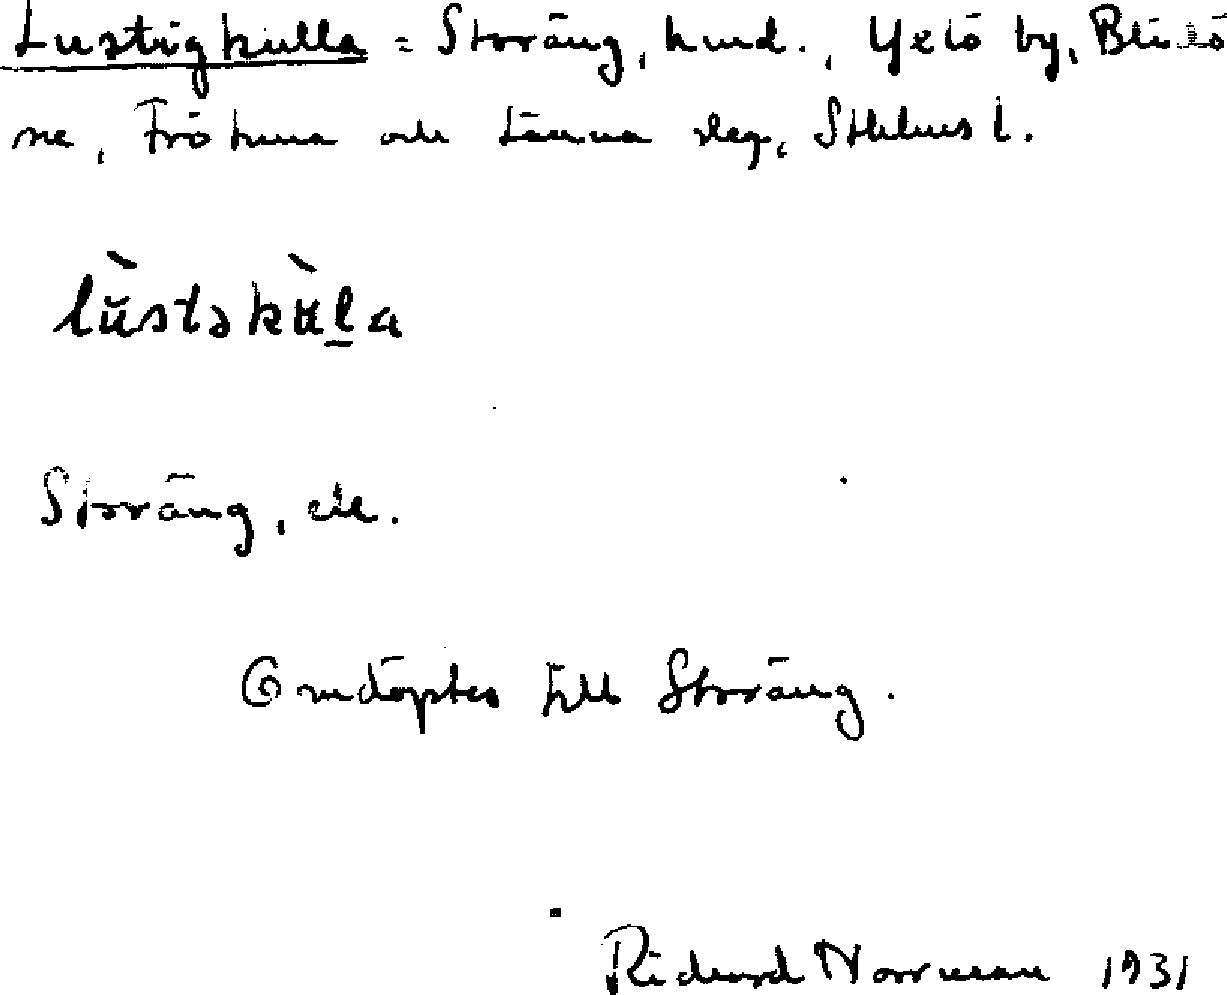 Lustigkulla = Storäng, hmd., Yxlö by, Blidö
sn, Frötuna och Länna slg, Sthlms l.
lùstskùla
Storäng, ek.
Omdöptes till Storäng.
Richard Norrman 1931